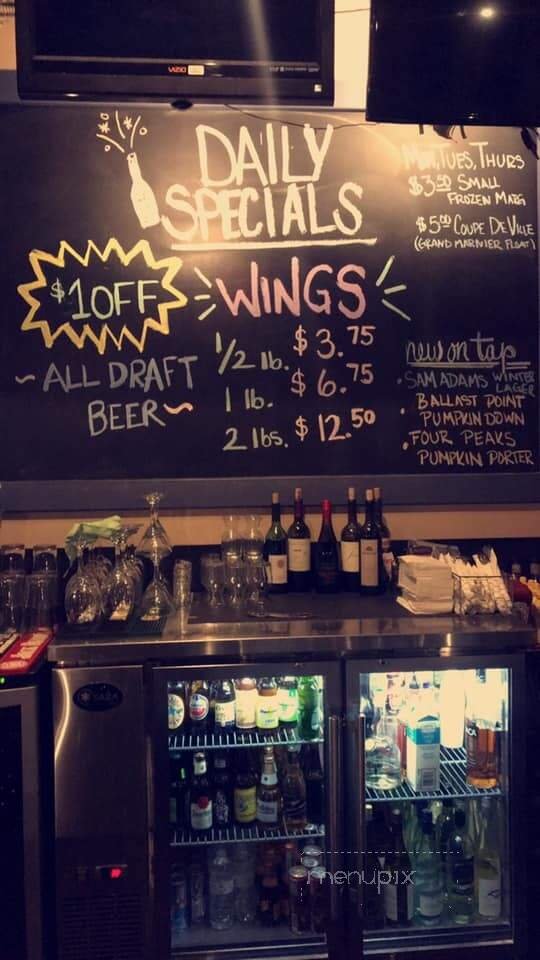 VIZIO
DAILY
SPECIALS
MON, TUES, THURS
$3.50 SMALL
FROZEN MARG
$5.00 COUPE DEVILLE
(GRAND MARNIER FLOAT)
$1 OFF
~ ALL DRAFT
BEER ~
WINGS
1/2 lb. $3.75
1 lb. $6.75
2 lbs. $12.50
new on tap
• SAM ADAMS WINTER
LAGER
• BALLAST POINT
PUMPKIN DOWN
• FOUR PEAKS
PUMPKIN PORTER
menupix